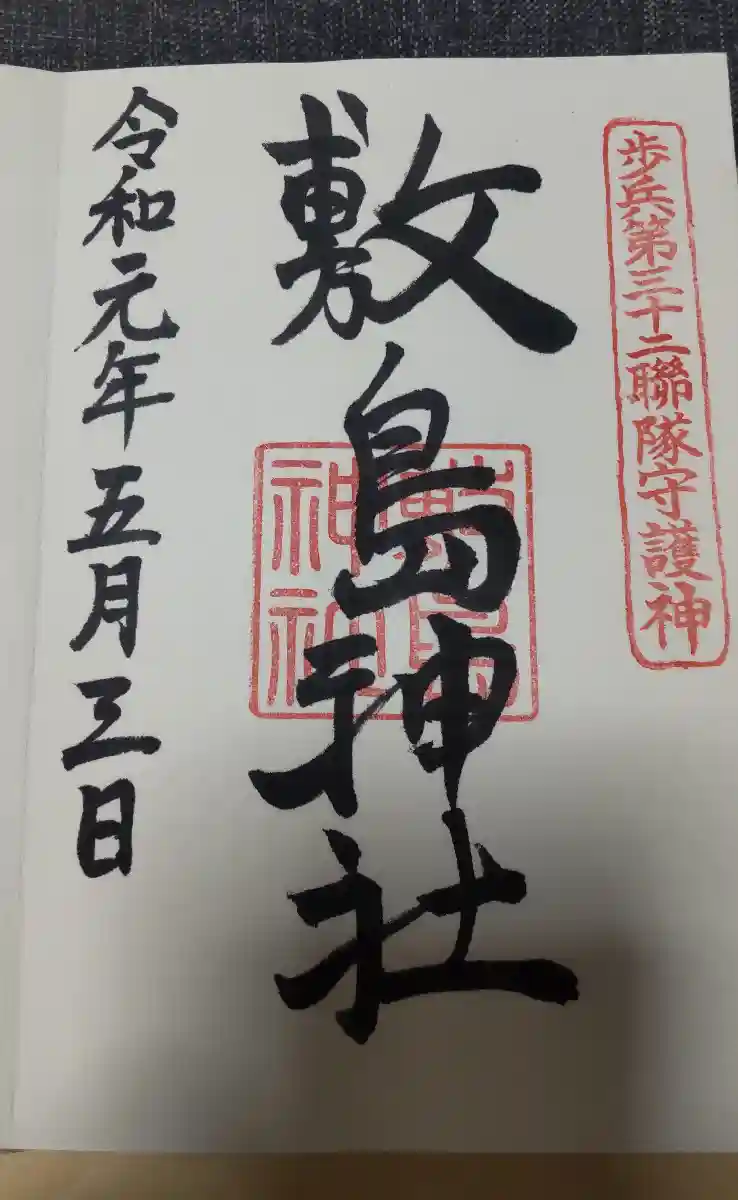 歩兵第三十二聯隊守護神
敷島神社
敷島
神社
令和元年五月三日